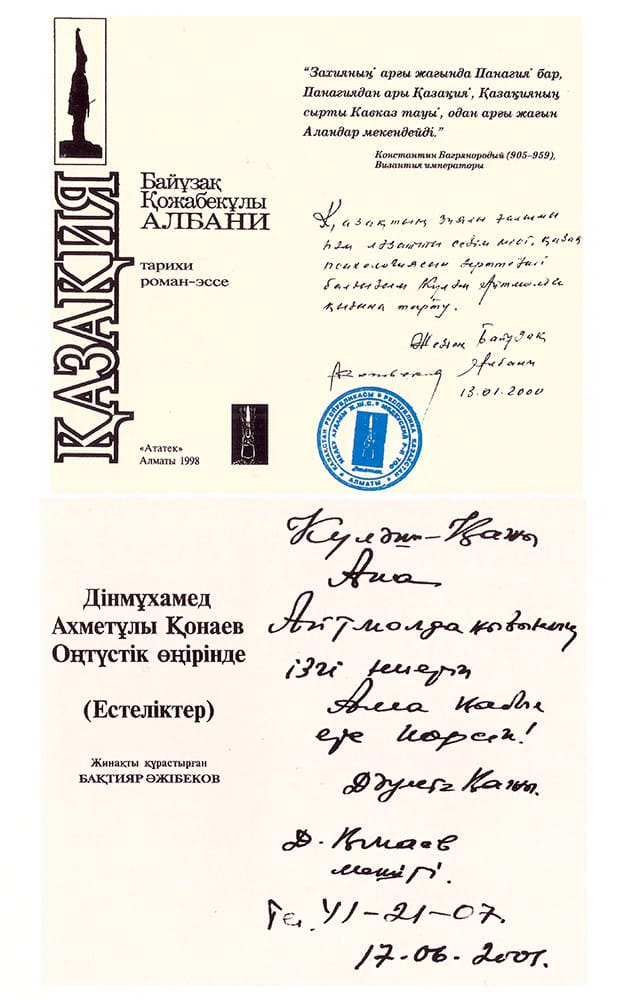 ҚАЗАҚИЯ
Байұзақ
Қожабекұлы
АЛБАНИ
тарихи
роман-эссе
«Ататек»
Алматы 1998
“Захияның арғы жағында Панагия бар,
Панагиядан ары Қазақия, Қазақияның
сырты Кавказ тауы, одан арғы жағын
Аландар мекендейді.”
Константин Багрянородый (905–959),
Византия императоры
Қазақтың зиялы ғалымы
һәм ләззатты сезім иесі, қазақ
психологиясын зерттеуші
балдызым Күләш Айтмолда
қызына тарту.
Жезнең Байұзақ
Албани
13.01.2000
ҚАЗАҚСТАН РЕСПУБЛИКАСЫ РЕСПУБЛИКА КАЗАХСТАН
АЛМАТЫ
Дінмұхамед
Ахметұлы Қонаев
Оңтүстік өңірінде
(Естеліктер)
Жинақты құрастырған
БАҚТИЯР ӘЖІБЕКОВ
Күләш-Қажы
Апа
Айтмолда қызының
ізгі ниетін
Алла қабыл
ете көрсін!
Дәулет Қажы.
Д. Қонаев
мешіті.
Тел. 41-21-07.
17-06-2001.